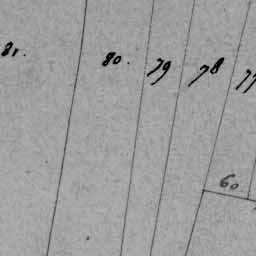 81. 80. 79 78 77
60